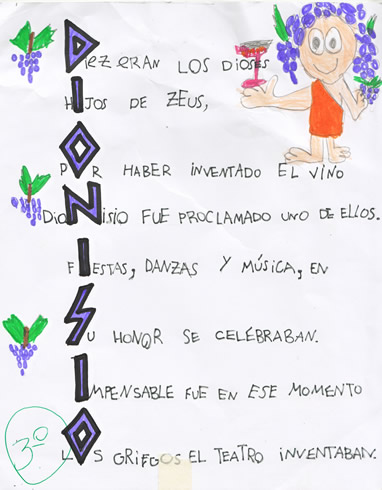 DIEZ ERAN LOS DIOSES
HIJOS DE ZEUS,
POR HABER INVENTADO EL VINO
DIONISIO FUE PROCLAMADO UNO DE ELLOS.
FIESTAS, DANZAS Y MÚSICA, EN
SU HONOR SE CELEBRABAN.
IMPENSABLE FUE EN ESE MOMENTO
LOS GRIEGOS EL TEATRO INVENTABAN.
3º